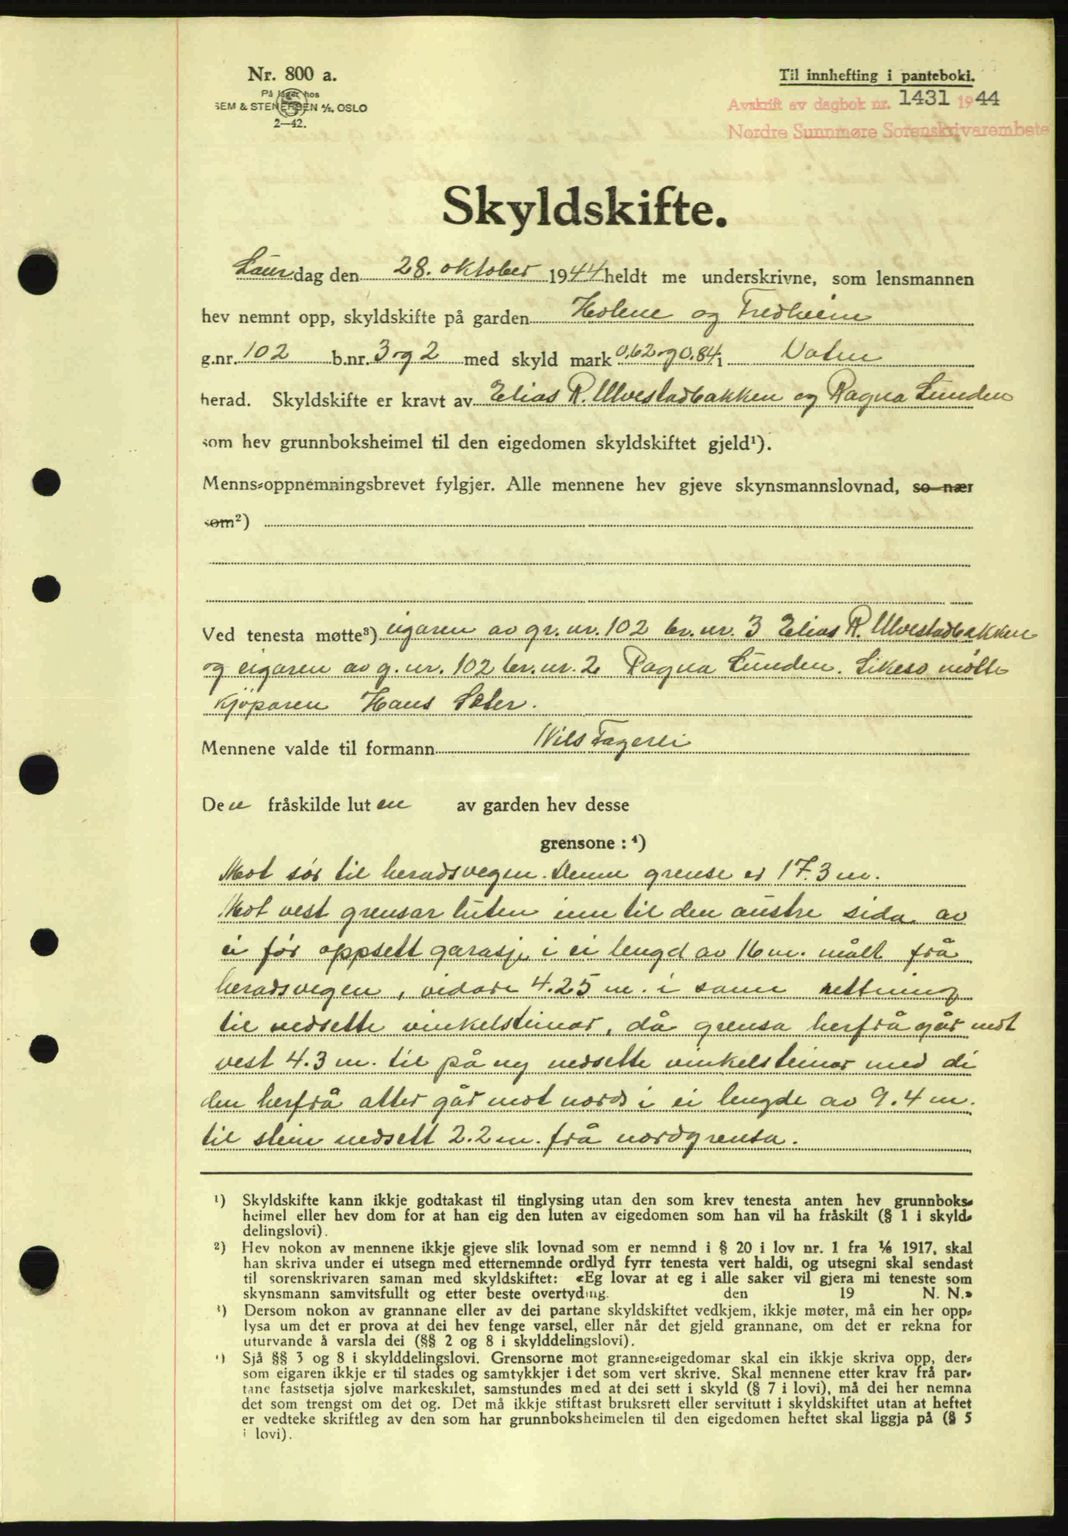 Nr. 800 a.
På lager hos
SEM & STENERSEN A/S, OSLO
2—42.
Til innhefting i panteboki.
Avskrift av dagbok nr. 1431 1944
Nordre Sunnmøre Sorenskrivarembete
Skyldskifte.
Laurdag den 28. oktober 1944 heldt me underskrivne, som lensmannen
hev nemnt opp, skyldskifte på garden Holene og Fredheim
g.nr. 102 b.nr. 3 og 2 med skyld mark 0,62 og 0,84 i Vatne
herad. Skyldskifte er kravt av Elias R. Ulvestadbakken og Ragna Lunden
som hev grunnboksheimel til den eigedomen skyldskiftet gjeld¹).
Menns-oppnemningsbrevet fylgjer. Alle mennene hev gjeve skynsmannslovnad, so nær
som²)
Ved tenesta møtte³) eigaren av gr. nr. 102 br. nr. 3 Elias R. Ulvestadbakken
og eigaren av g. nr. 102 br. nr. 2 Ragna Lunden. Likeso møtte
kjøparen Hans Sæter.
Mennene valde til formann Nils Fagerli
Den fråskilde luten av garden hev desse
grensone : ⁴)
Mot sør til heradsvegen. Denne grense er 17.3 m.
Mot vest grensar luten inn til den austre sida av
ei før oppsett garasje i ei lengd av 16 m. målt frå
heradsvegen, vidare 4.25 m. i same rettning
til nedsette vinkelsteinar, då grensa herfrå går mot
vest 4.3 m. til på ny nedsette vinkelsteinar med di
den herfrå atter går mot nord i ei lengde av 9.4 m.
til stein nedsett 2.2 m. frå nordgrensa.
¹) Skyldskifte kann ikkje godtakast til tinglysing utan den som krev tenesta anten hev grunnboks-
heimel eller hev dom for at han eig den luten av eigedomen som han vil ha fråskilt (§ 1 i skyld-
delingslovi).
²) Hev nokon av mennene ikkje gjeve slik lovnad som er nemnd i § 20 i lov nr. 1 fra 1/6 1917, skal
han skriva under ei utsegn med etternemnde ordlyd fyrr tenesta vert haldi, og utsegni skal sendast
til sorenskrivaren saman med skyldskiftet: «Eg lovar at eg i alle saker vil gjera mi teneste som
skynsmann samvitsfullt og etter beste overtyding. den 19 N. N.»
³) Dersom nokon av grannane eller av dei partane skyldskiftet vedkjem, ikkje møter, må ein her opp-
lysa um det er prova at dei hev fenge varsel, eller når det gjeld grannane, om det er rekna for
uturvande å varsla dei (§§ 2 og 8 i skylddelingslovi).
⁴) Sjå §§ 3 og 8 i skylddelingslovi. Grensorne mot granne-eigedomar skal ein ikkje skriva opp, der-
som eigaren ikkje er til stades og samtykkjer i det som vert skrive. Skal mennene etter krav frå par-
tane fastsetja sjølve markeskilet, samstundes med at dei sett i skyld (§ 7 i lovi), må dei her nemna
det som trengst om det og. Det må ikkje stiftast bruksrett eller servitutt i skyldskiftet utan at heftet
er vedteke skriftleg av den som har grunnboksheimelen til den eigedomen heftet skal liggja på (§ 5
i lovi).